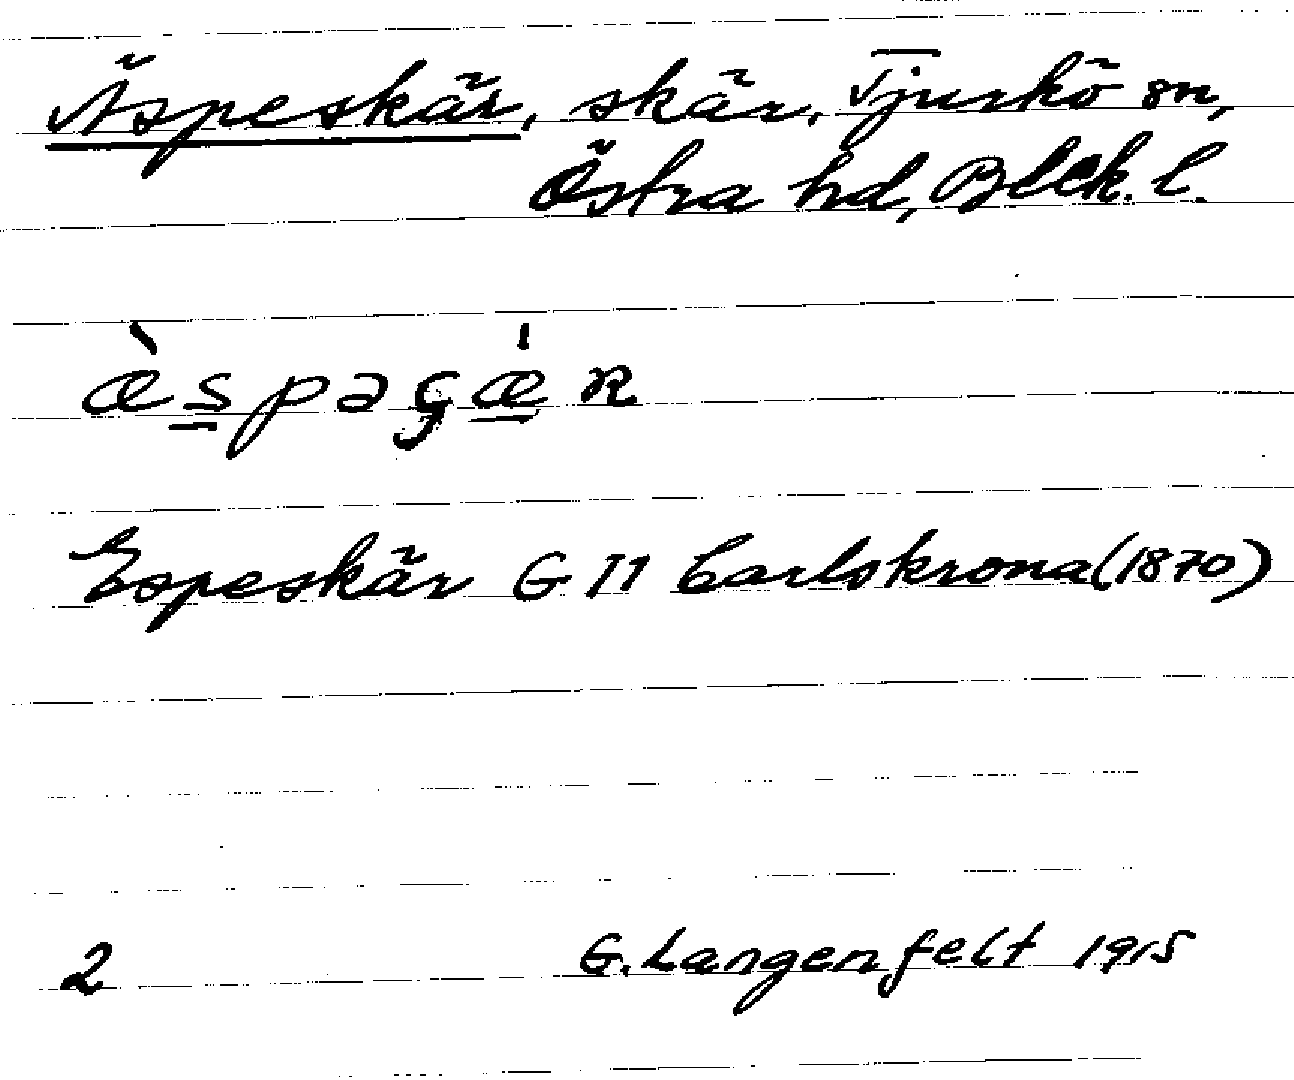 Äspeskär, skär, Tjurkö sn,
Östra hd, Blek. l.
æ̀s̲pəgæ̲̍ʀ
Espeskär G II Carlskrona (1870)
2 G. Langenfelt 1915